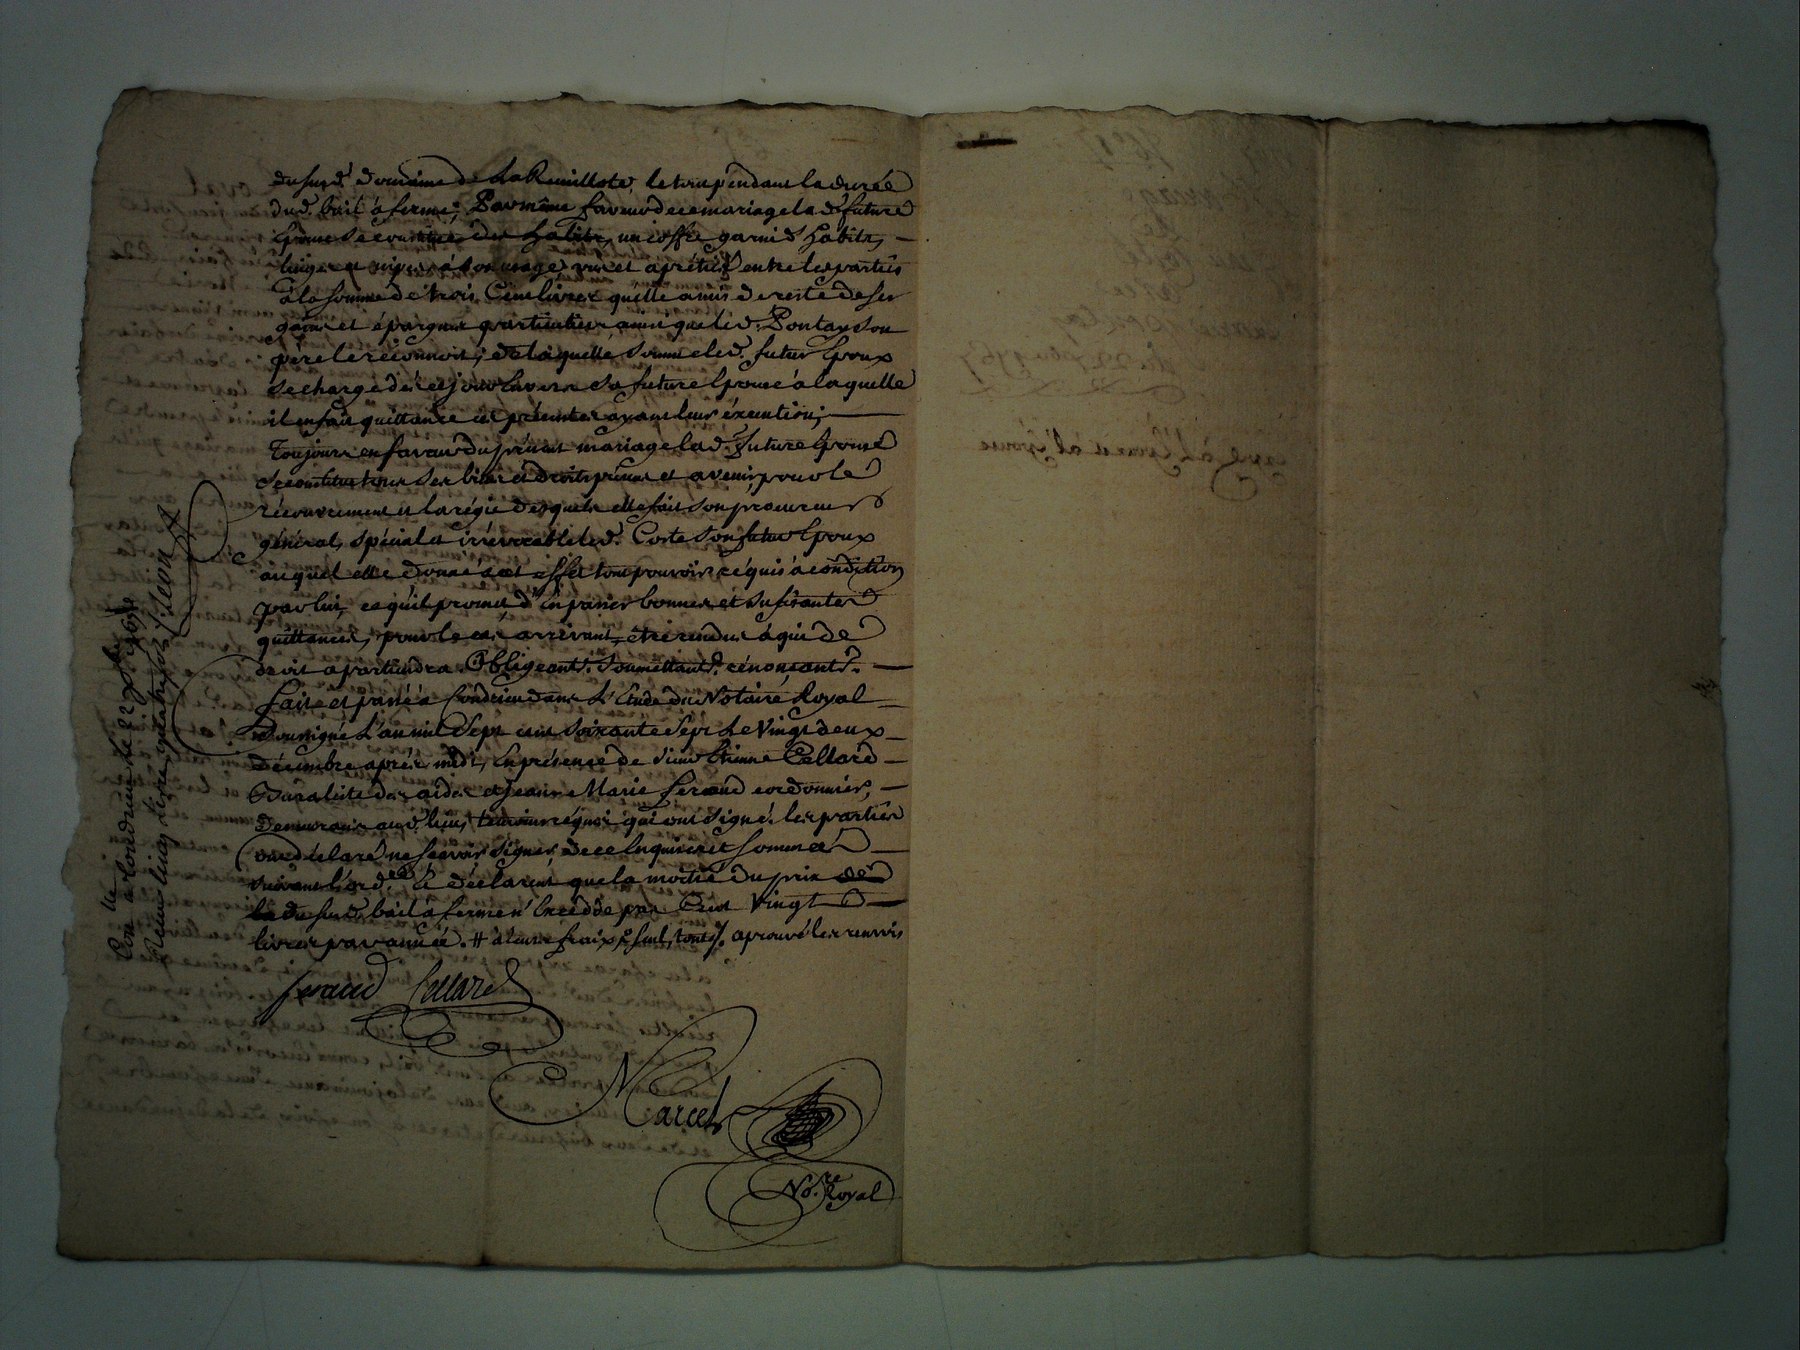 du susd. domaine de la Revillote, le tout pendant la durée
dud. bail à ferme; Par même faveur de ce mariage lad. future
Epouse se constitue des habits, un coffre garni d'habits,
linges et nipes à son usage, vu et aprétié entre les parties
à la somme de trois Cent livres qu'elle a mis de reste de ses
gains et épargnes particuliers ainsi que led. Pontay son
père le réconnoit, de laquelle somme led. futur Epoux
se charge dès ce jour Envers sa future Epouse à laquelle
il en fait quittance ces présentes ayant leur éxécution;
Toujours en faveur du présent mariage lad. future Epouse
se constitue tous ses biens et droits présens et avenir pour le
récouvrement et la régie desquels elle fait son procureur
général, spécial et irrévocable led. Coste son futur Epoux
auquel elle donne à cet effet tout pouvoir réquis à condition
par lui, ce qu'il promet, d'en passer bonnes et sufisantes
quittances, pour le cas arrivant être rendus à qui de
droit apartiendra. Obligeants. soumettants. rénonçants.
Fait et passé à Condrieu dans l'Etude du Notaire Royal
Soussigné L'an mil Sept cent soixante sept Le Vingt deux
décembre après midi, En présence de sieur Etienne Cellard
Buraliste des aides et Jean Marie Feraud cordonnier,
demeurans aud. lieu, témoins réquis qui ont signé. les parties
ont déclaré ne sçavoir signer de ce Enquises et sommées
suivant l'ord.ce Et déclarent que la moitié du prix de
la du susd. bail à ferme n'Excède pas Cent Vingt
livres par année. # à leurs fraix aprouvé les renvois
Feraud Cellard
Marcel
No.re Royal
Con.lé à Condrieu le
Reçu